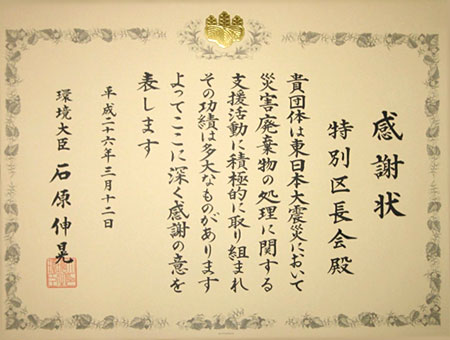 感謝状
特別区長会殿
貴団体は東日本大震災において
災害廃棄物の処理に関する
支援活動に積極的に取り組まれ
その功績は多大なものがあります
よってここに深く感謝の意を
表します
平成二十六年三月十二日
環境大臣 石原伸晃